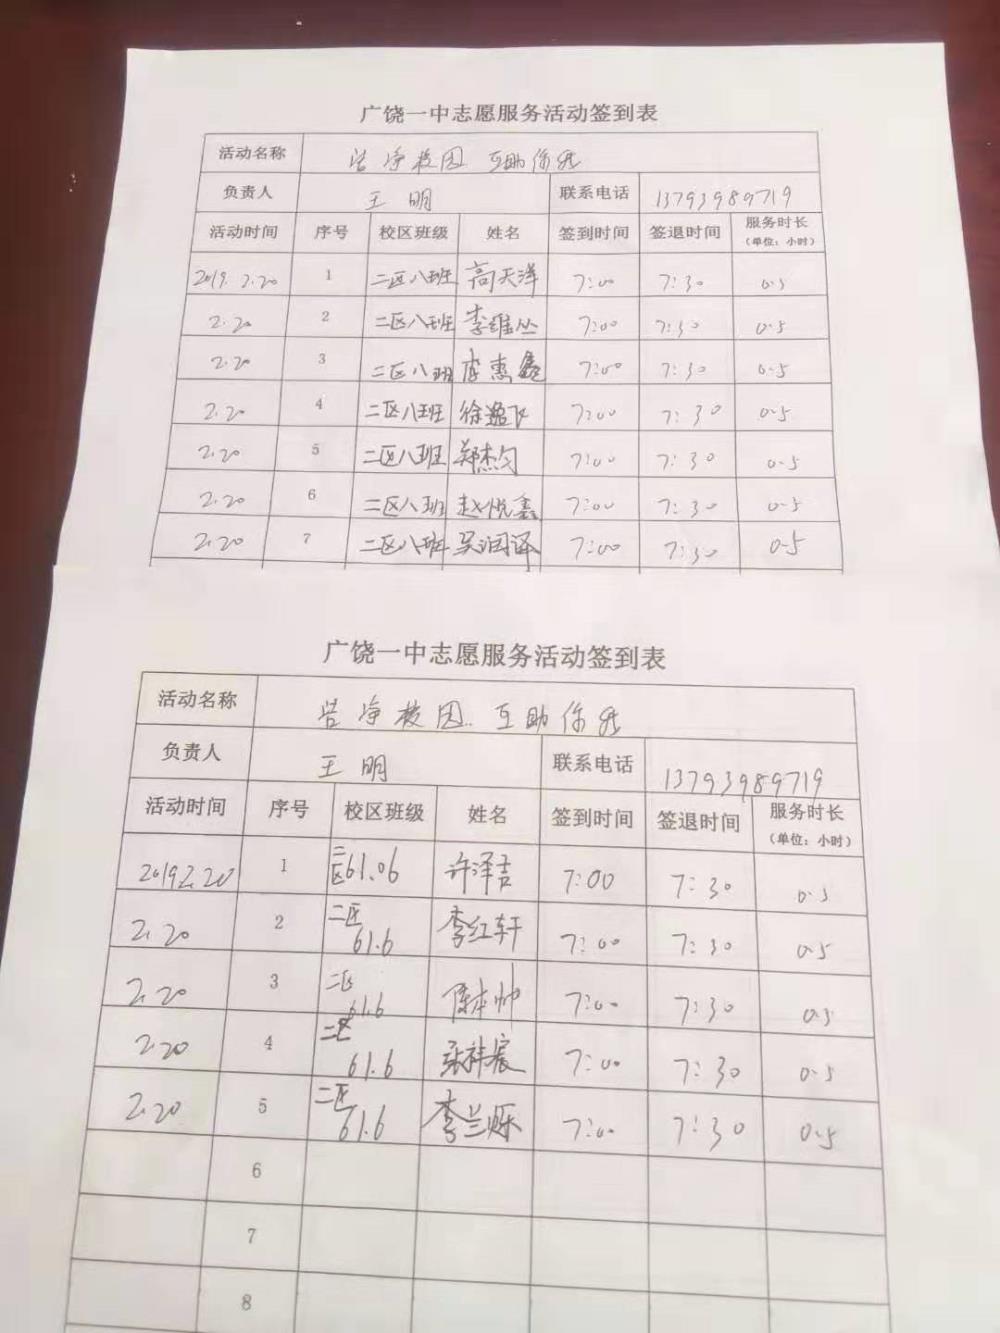 广饶一中志愿服务活动签到表
活动名称 洁净校园 互助你我
负责人 王明 联系电话 13793989719
活动时间 序号 校区班级 姓名 签到时间 签退时间 服务时长（单位：小时）
2019.2.20 1 二区八班 高天洋 7:00 7:30 0.5
2.20 2 二区八班 李维丛 7:00 7:30 0.5
2.20 3 二区八班 李惠鑫 7:00 7:30 0.5
2.20 4 二区八班 徐逸飞 7:00 7:30 0.5
2.20 5 二区八班 郑杰匀 7:00 7:30 0.5
2.20 6 二区八班 赵悦鑫 7:00 7:30 0.5
2.20 7 二区八班 吴润泽 7:00 7:30 0.5
广饶一中志愿服务活动签到表
活动名称 洁净校园 互助你我
负责人 王明 联系电话 13793989719
活动时间 序号 校区班级 姓名 签到时间 签退时间 服务时长（单位：小时）
2019.2.20 1 二区61.06 许泽吉 7:00 7:30 0.5
2.20 2 二区61.6 李红轩 7:00 7:30 0.5
2.20 3 二区61.6 陈本帅 7:00 7:30 0.5
2.20 4 二区61.6 张祥宸 7:00 7:30 0.5
2.20 5 二区61.6 李兰烁 7:00 7:30 0.5
6
7
8